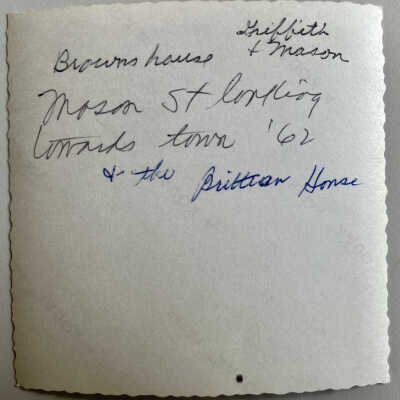 Griffith
Browns house & Mason
Mason St looking
towards town '62
& the Brittan House